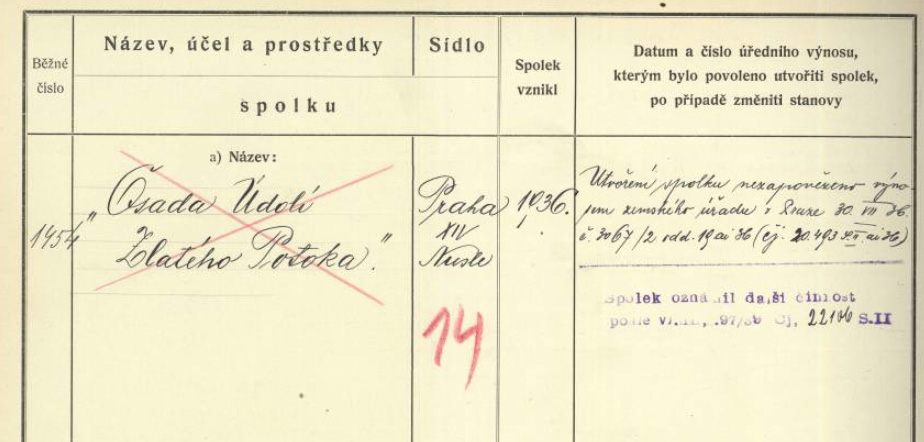 Běžné
číslo
Název, účel a prostředky
spolku
Sídlo
Spolek
vznikl
Datum a číslo úředního výnosu,
kterým bylo povoleno utvořiti spolek,
po případě změniti stanovy
a) Název:
1454
"Osada Údolí
Zlatého Potoka."
Praha
XIV
Nusle
14
1936.
Utvoření spolku nezapovězeno výno-
sem zemského úřadu v Praze 30. VII 36.
č. 3067/2 odd. 19 ai 36 (čj. 20.493 ai 36)
Spolek oznámil další činnost
podle 97/39 Čj. 22106 S.II